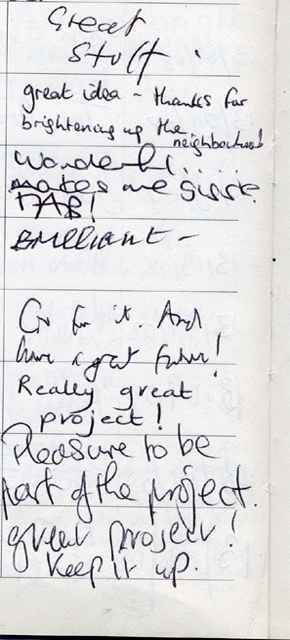 Great
Stuff.
great idea - thanks for
brightening up the
neighbourhood!
Wonderful.....
makes me
FAB!
BRILLIANT -
Go for it And
have a great future!
Really great
project!
Pleasure to be
part of the project.
great project!
Keep it up.